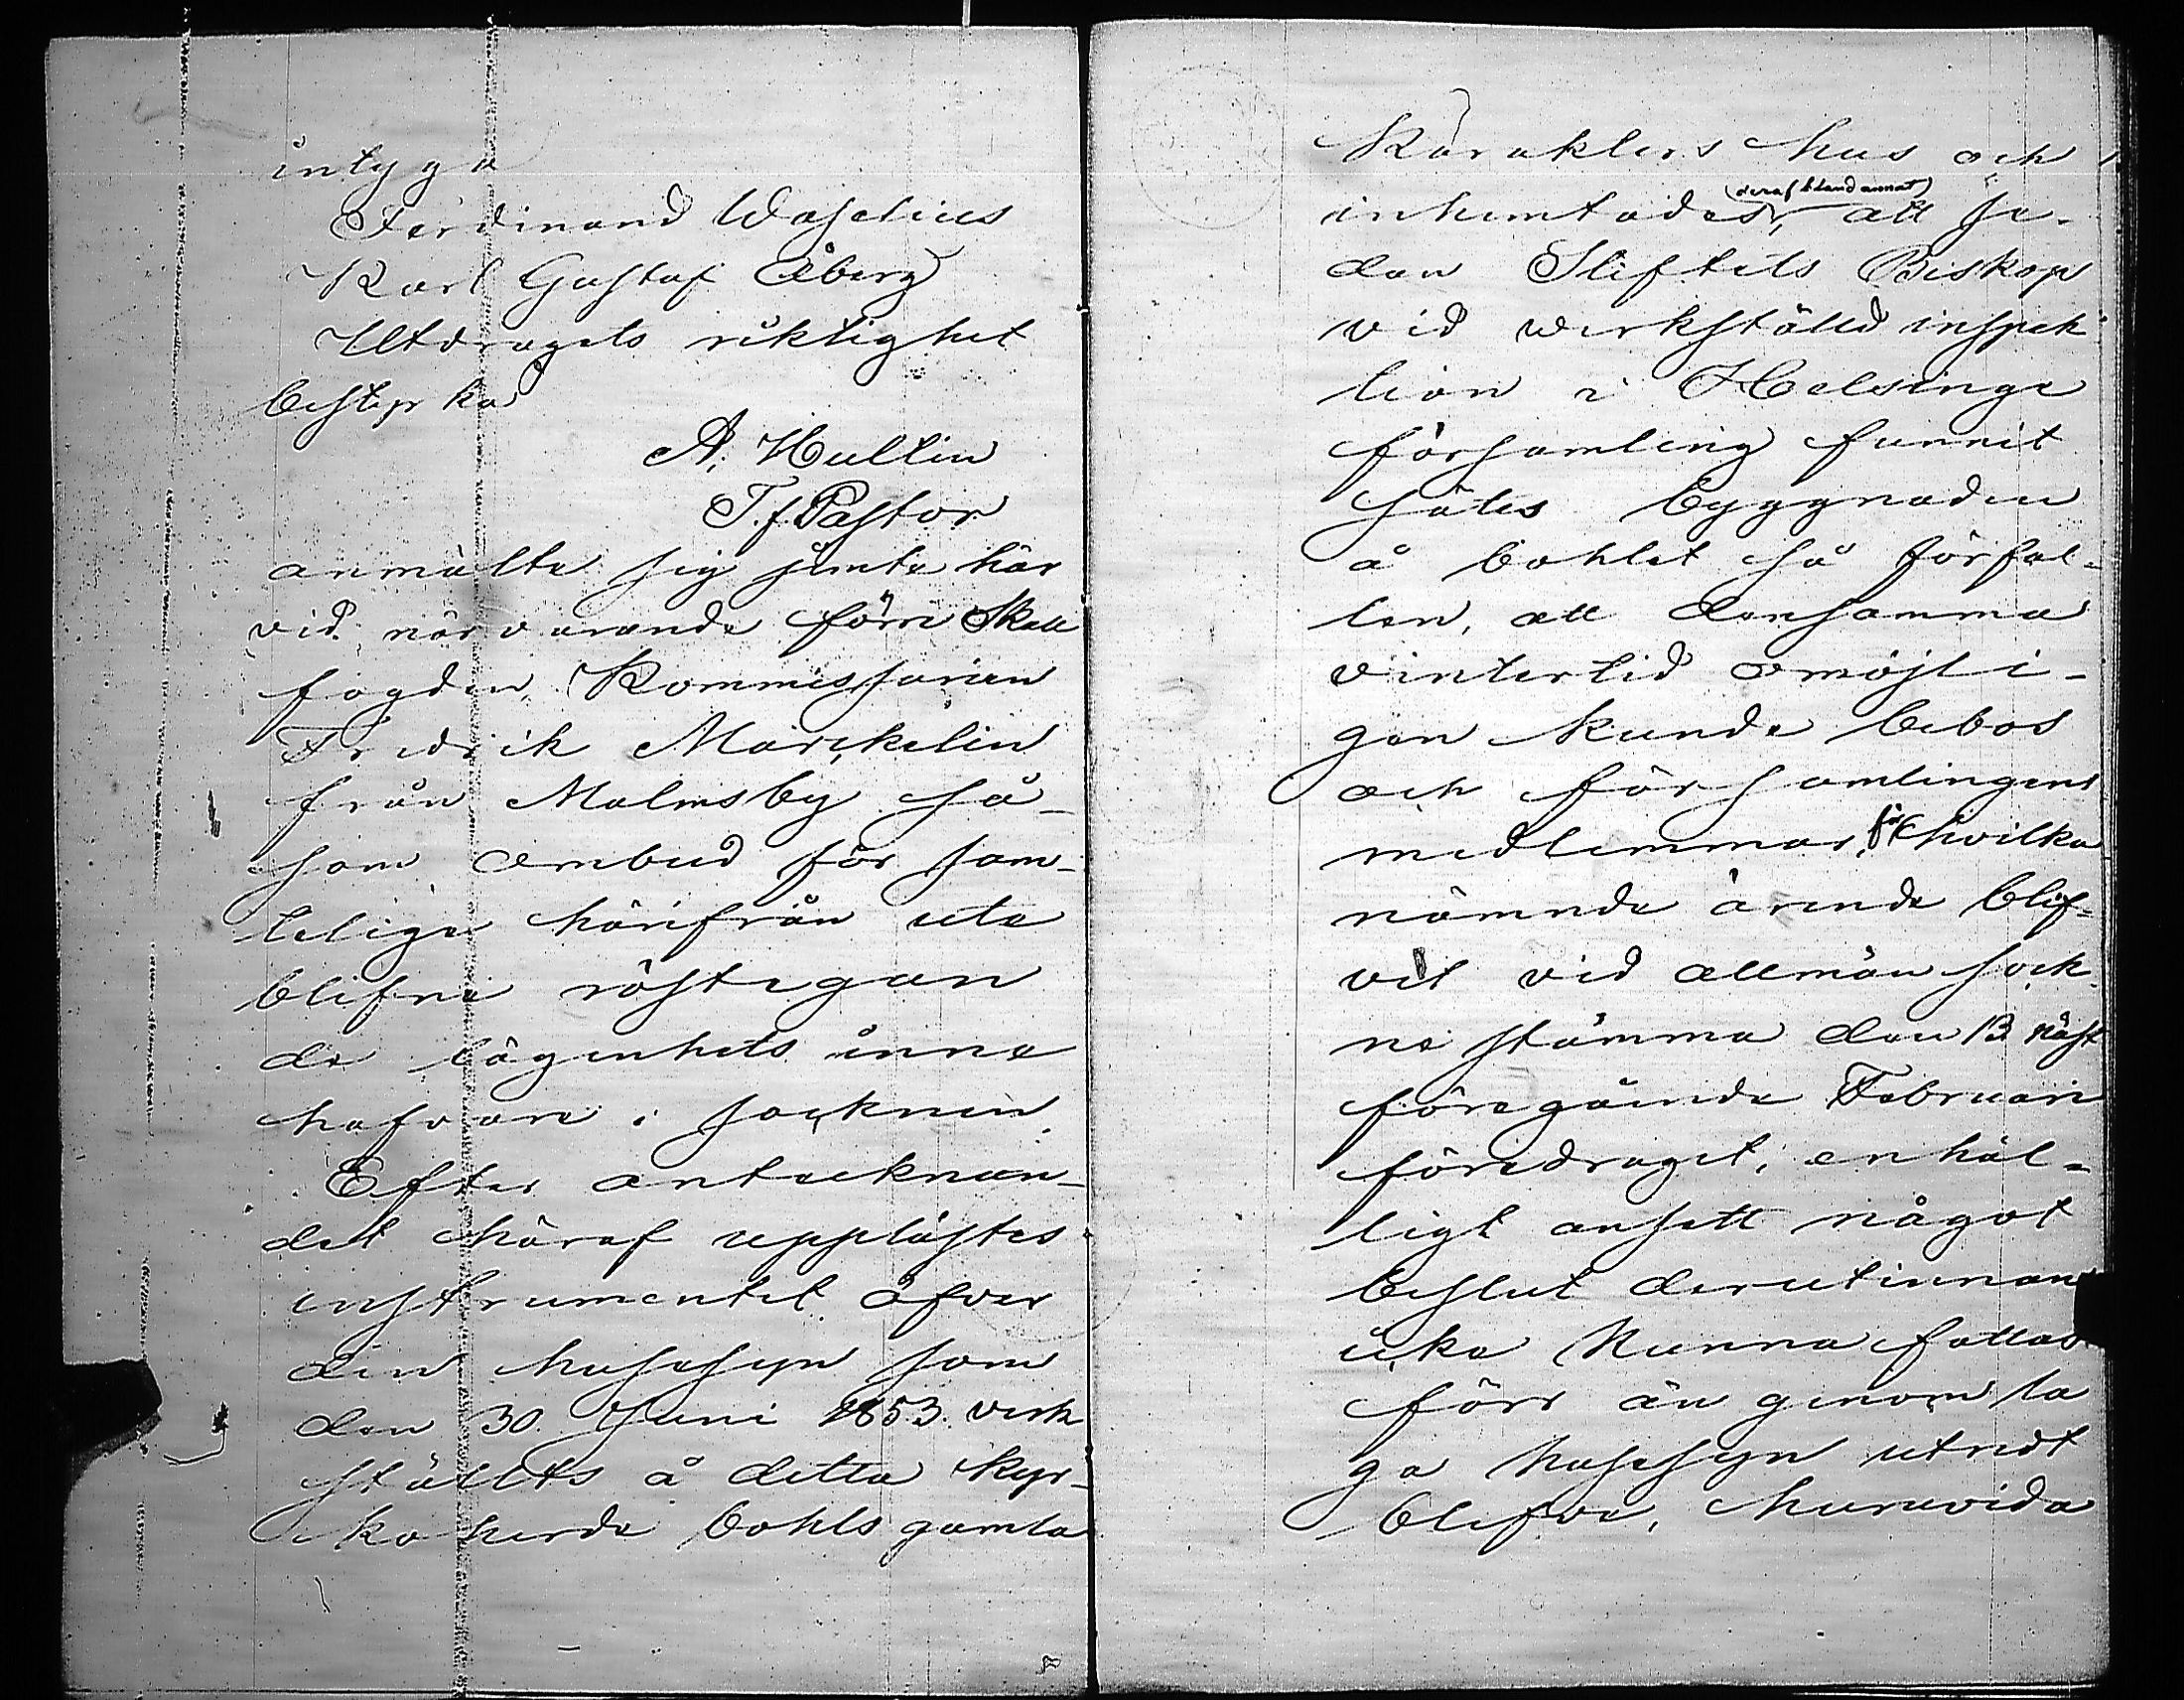 intyga
Ferdinand Waselius
Karl Gustaf Åberg
Utdragets riktighet
bestyrka
A. Hultin
T.f. Pastor
anmälte sig jemte här
vid närvarande förre Skatt
fogden, Kommissarien
Fredrik Marckelin
från Malmsby så-
som ombud för sam-
teliga härifrån ute
blifne röstegan
de lägenhets inne
hafvare i socknen.
Efter antecknan-
det häraf upplästes
instrumentet öfver
den husesyn som
den 30 Juni 1853 verk
ställts å detta kyr-
koherde bohls gamla
karakters hus och
inhemtades, (deraf bland annat) att se-
dan Stiftets Biskop
vid verkställd inspek
tion i Helsinge
församling funnit
sätes byggnaden
å bohlet så förfal-
len, att densamma
vintertid omöjli-
gen kunde bebos
och församlingens
medlemmar, för hvilka
nämnde ärende blif-
vit vid allmän sock
ne stämma den 13 näst
föregående Februari
föredraget, enhäl-
ligt ansett något
beslut derutinnan
icke kunna fattas
förr än genom la
ga husesyn utredt
blefve, huruvida